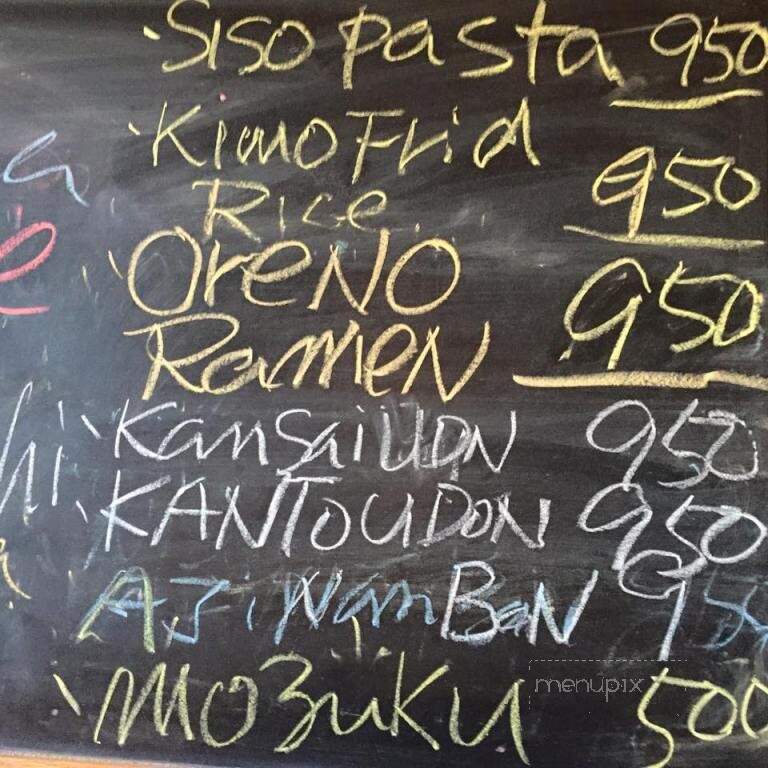 Siso pasta 950
Kimo Frid
Rice 950
OreNO
RameN 950
KansaiUDN 950
KANToUDON 950
AJi NanBaN 95
MOZuKU 500
menupix